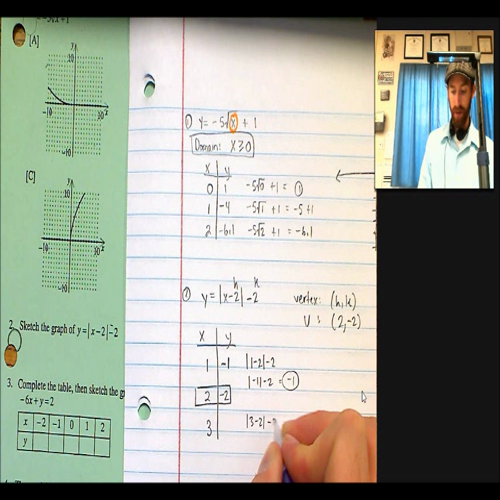 [A]
y
10
-10
10 x
-10
[C]
y
10
-10
10 x
-10
2. Sketch the graph of y = |x - 2| - 2
3. Complete the table, then sketch the
-6x + y = 2
x -2 -1 0 1 2
y
① y = -5√x + 1
Domain: x ≥ 0
x y
0 1 -5√0 + 1 = 1
1 -4 -5√1 + 1 = -5+1
2 -6.1 -5√2 + 1 = -6.1
h k
y = |x-2| -2
vertex: (h,k)
V: (2,-2)
x y
1 -1 |1-2| -2
|-1| -2 = -1
2 -2
3 |3-2| -